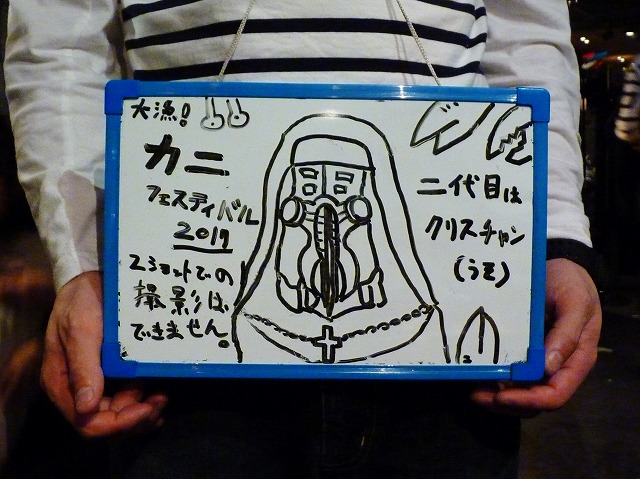 大漁!
カニ
フェスティバル
2017
2ショットでの
撮影は
できません。
二代目は
クリスチャン
(うそ)